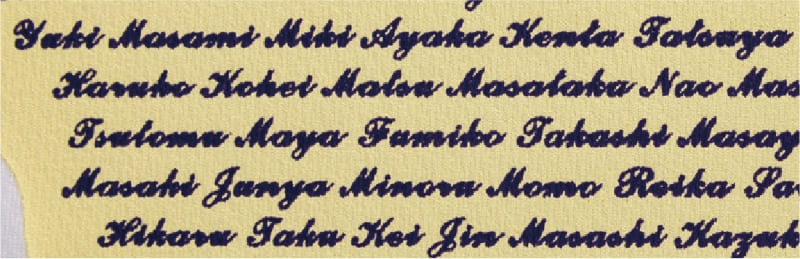 Yuki Masami Miki Ayaka Kenta Tatsuya
Haruko Kohei Matsu Masataka Nao Mas
Tsutomu Maya Fumiko Takashi Masay
Masaki Junya Minoru Momo Reika Sa
Hikaru Taku Kei Jin Masashi Kazuk